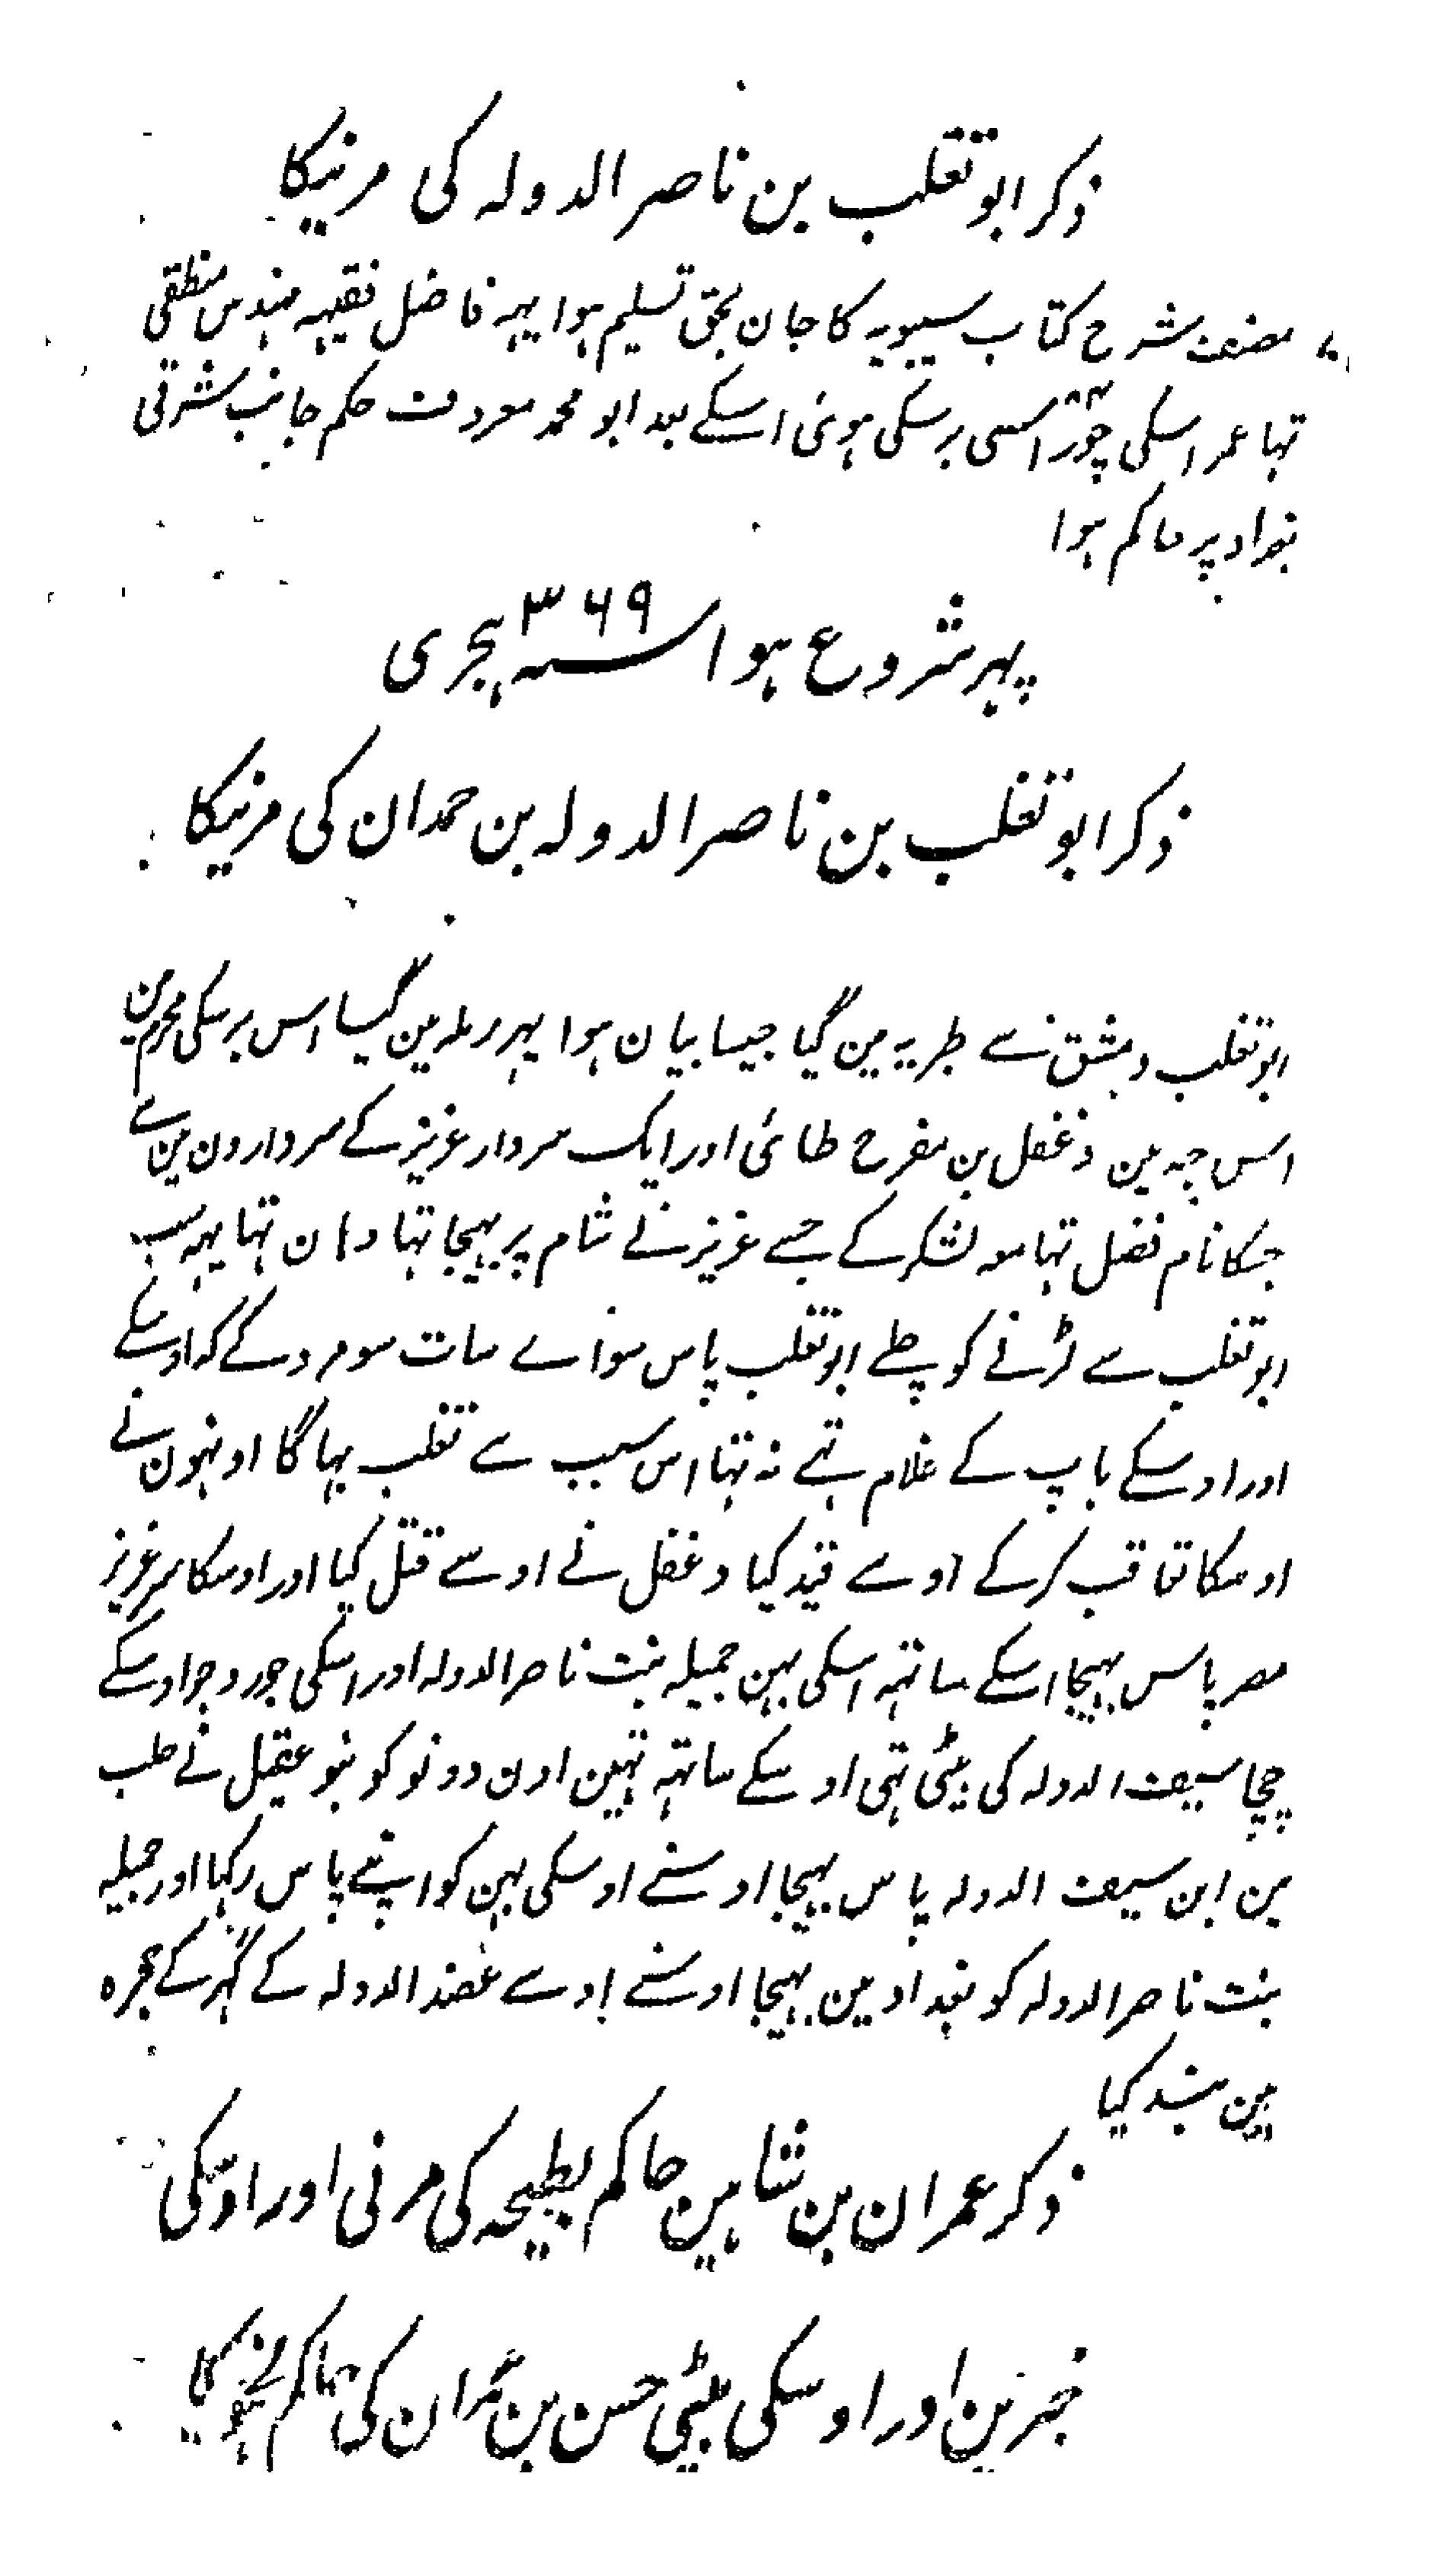 ذکر ابو تغلب بن ناصر الدولہ کی مرنیکا
مصنف شرح کتاب سیبویہ کا جان بحق تسلیم ہوا یہہ فاضل فقیہہ مہندس منطقی
تہا عمر اسکی چوراسی برسکی ہوئی اسکے بعد ابو محمد معروف حکم جانب شرقی
بغداد پر حاکم ہوا
پہر شروع ہوا سنہ ۳۶۹ ہجری
ذکر ابو تغلب بن ناصر الدولہ بن حمدان کی مرنیکا
ابو تغلب دمشق سے طبریہ مین گیا جیسا بیان ہوا پہر رملہ مین گیا اس برسکی محرم مین
اس جہہ مین دغفل بن مفرح طائی اور ایک سردار عزیز کے سردارون مین سے
جسکا نام فضل تہا معہ لشکر کے جسے عزیز نے شام پر بہیجا تہا وہان تہا یہہ سب
ابو تغلب سے لڑنے کو چلے ابو تغلب پاس سواے سات سو مرد کے کہ اوسکے
اور اوسکے باپ کے غلام تہے نہ تہا اس سبب سے تغلب بہاگا اونہون نے
اوسکا تعاقب کرکے اوسے قید کیا دغفل نے اوسے قتل کیا اور اوسکا سر عزیز
مصر پاس بہیجا اسکے ساتہہ اسکی بہن جمیلہ بنت ناصر الدولہ اور اسکی جورو جو اوسکے
چچا سیف الدولہ کی بیٹی تہی اوسکے ساتہہ تہین اون دونو کو بنو عقیل نے حلب
مین ابن سیف الدولہ پاس بہیجا اوسنے اوسکی بہن کو اپنے پاس رکہا اور جمیلہ
بنت ناصر الدولہ کو بغداد مین بہیجا اوسنے اوسے عضد الدولہ کے گہر کے حجرہ
مین بند کیا
ذکر عمران بن شاہین حاکم بطیحہ کی مرنی اور اوسکی
خبرین اور اوسکی بیٹی حسن بن عمران کی حاکم ہونیکا